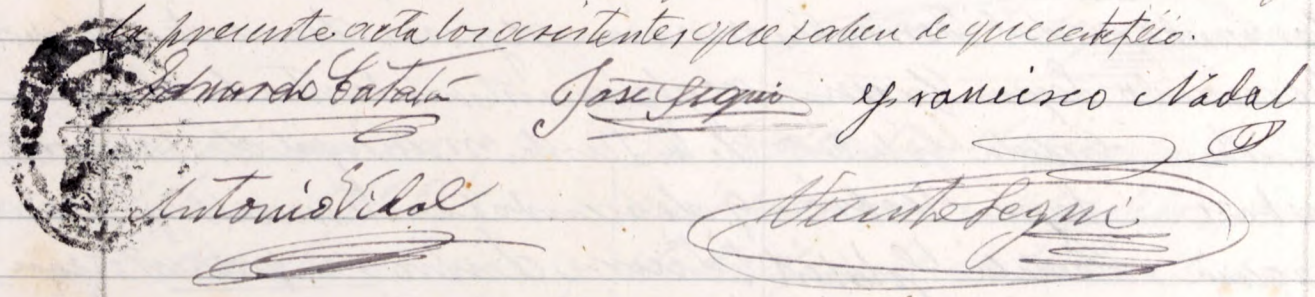 la presente acta los asistentes que saben de que certifico.
Eduardo Catalá José Seguí Francisco Nadal
Antonio Vidal Vicente Seguí